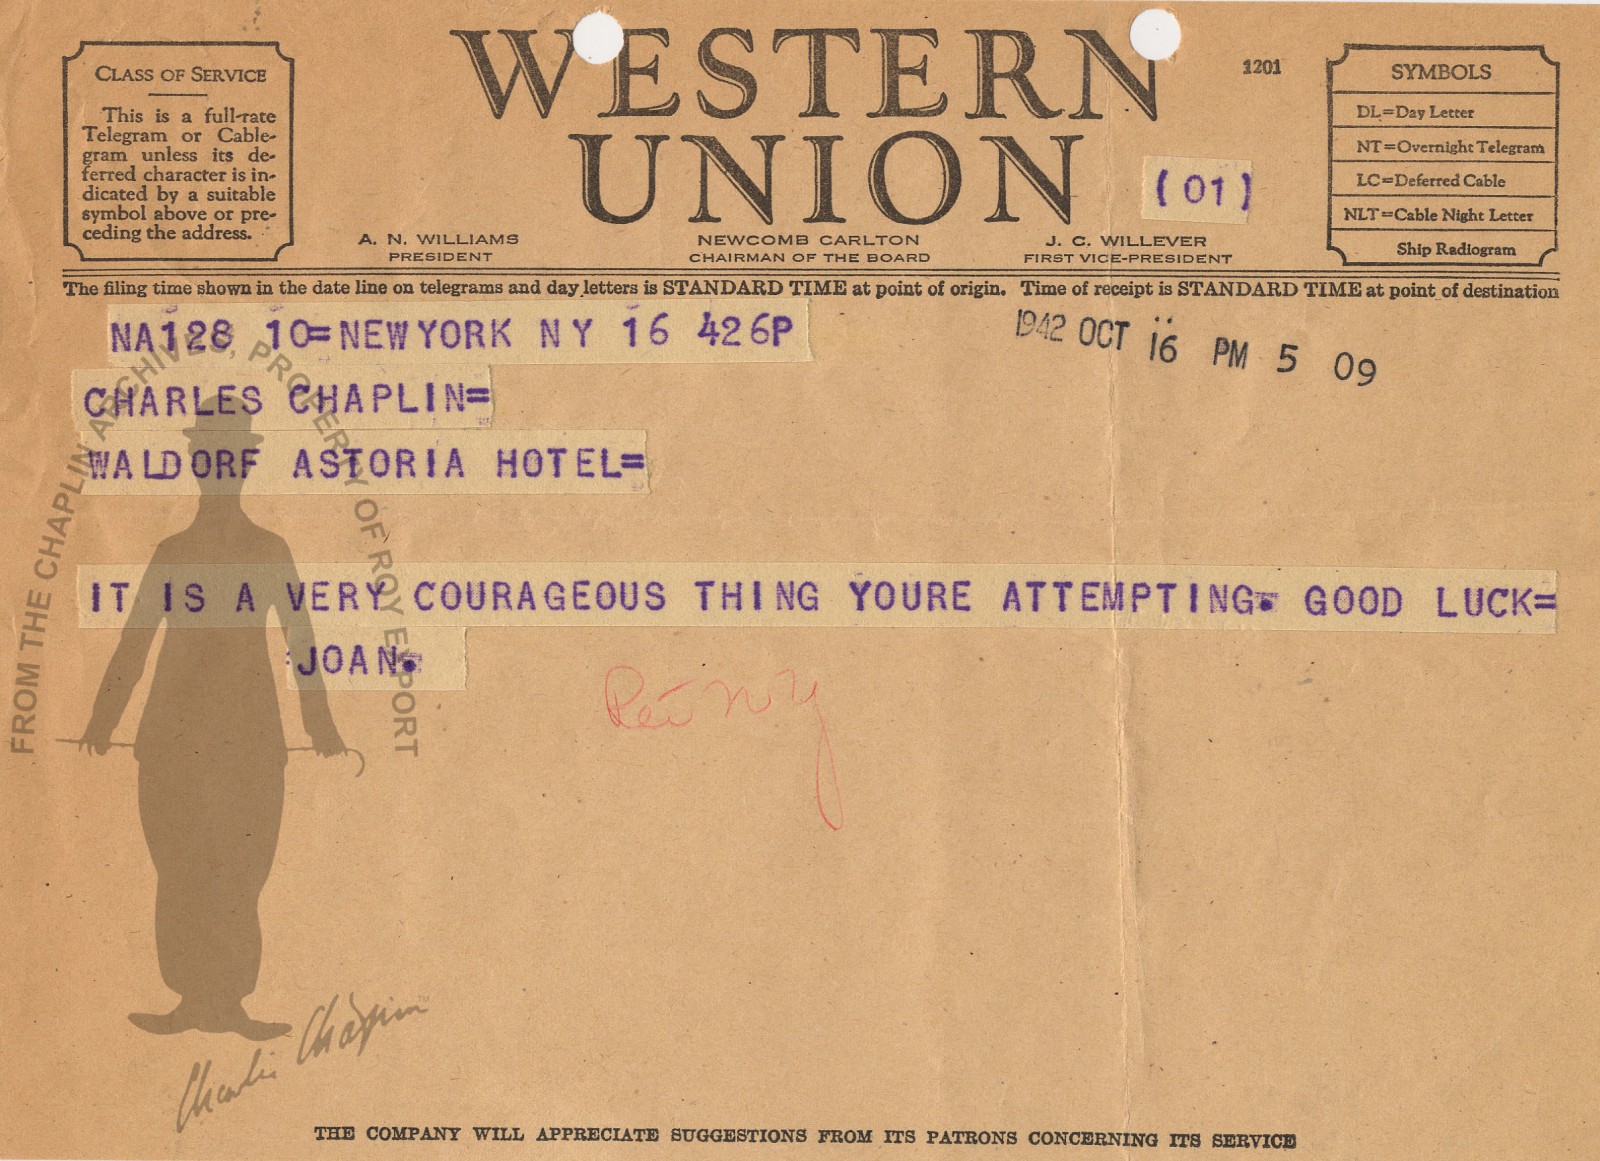 WESTERN
UNION
1201
(01)
CLASS OF SERVICE
This is a full-rate
Telegram or Cable-
gram unless its de-
ferred character is in-
dicated by a suitable
symbol above or pre-
ceding the address.
SYMBOLS
DL=Day Letter
NT=Overnight Telegram
LC=Deferred Cable
NLT=Cable Night Letter
Ship Radiogram
A. N. WILLIAMS
PRESIDENT
NEWCOMB CARLTON
CHAIRMAN OF THE BOARD
J. C. WILLEVER
FIRST VICE-PRESIDENT
The filing time shown in the date line on telegrams and day letters is STANDARD TIME at point of origin. Time of receipt is STANDARD TIME at point of destination
NA128 10=NEWYORK NY 16 426P
1942 OCT 16 PM 5 09
CHARLES CHAPLIN=
WALDORF ASTORIA HOTEL=
IT IS A VERY COURAGEOUS THING YOURE ATTEMPTING. GOOD LUCK=
:JOAN.
NY
FROM THE CHAPLIN ARCHIVES, PROPERTY OF ROY EXPORT
Charlie Chaplin
THE COMPANY WILL APPRECIATE SUGGESTIONS FROM ITS PATRONS CONCERNING ITS SERVICE